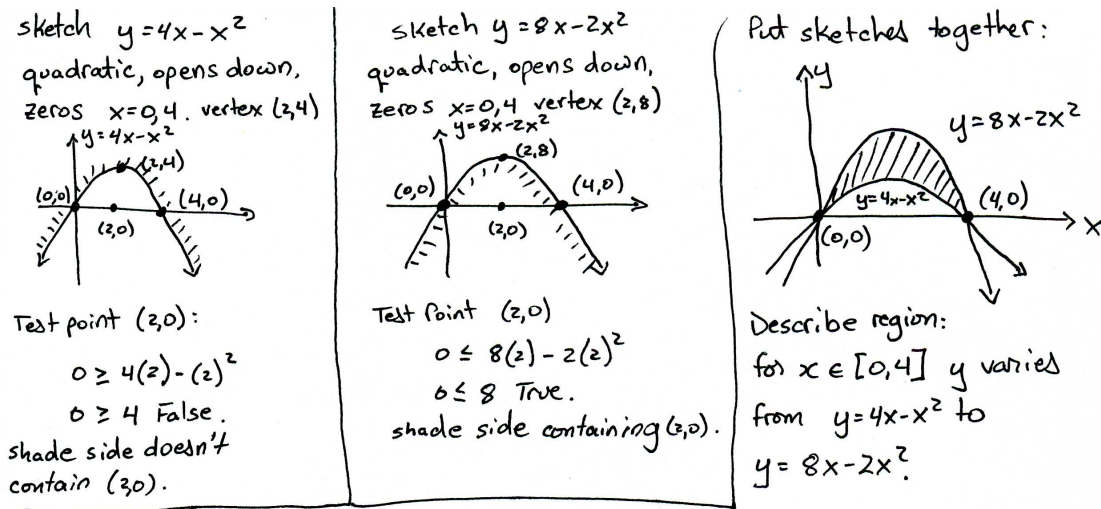 sketch y=4x-x²
quadratic, opens down,
zeros x=0,4. vertex (2,4)
y=4x-x²
(2,4)
(0,0)
(4,0)
(2,0)
Test point (2,0):
0 ≥ 4(2)-(2)²
0 ≥ 4 False.
shade side doesn't
contain (2,0).
sketch y=8x-2x²
quadratic, opens down,
zeros x=0,4 vertex (2,8)
y=8x-2x²
(2,8)
(0,0)
(4,0)
(2,0)
Test Point (2,0)
0 ≤ 8(2)-2(2)²
0 ≤ 8 True.
shade side containing (2,0).
Put sketches together:
y
y=8x-2x²
y=4x-x²
(4,0)
x
(0,0)
Describe region:
for x ∈ [0,4] y varies
from y=4x-x² to
y= 8x-2x².